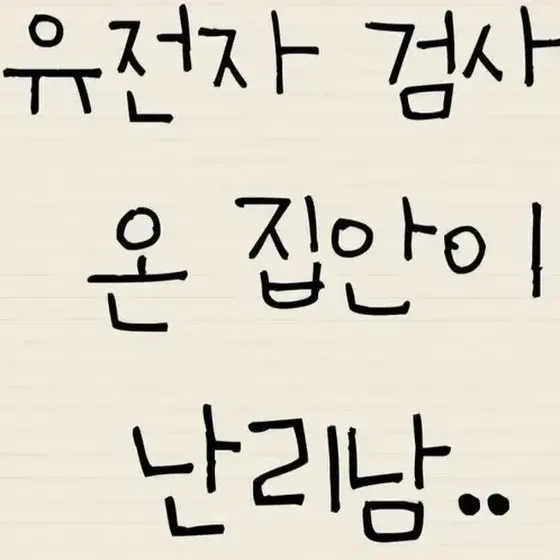 유전자 검사
온 집안이
난리남..